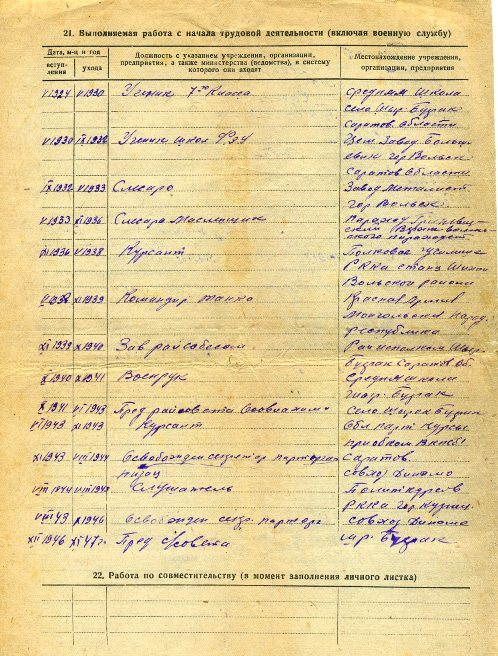 21. Выполняемая работа с начала трудовой деятельности (включая военную службу)
Дата, м-ц и год
вступ-
ления
ухода
Должность с указанием учреждения, организации,
предприятия, а также министерства (ведомства), в систему
которого они входят
Местонахождение учреждения,
организации, предприятия
V 1924 V 1930 Ученик 7го Класса Средняя школа
село Шир. Буерак
Саратов. области
V 1930 IX 1932 Ученик школ ФЗУ Цем Завод. Больш
евик гор Вольск
Саратов области
IX 1932 V 1933 Слесарь Завод Металист
гор. Вольск
V 1933 XI 1936 Слесарь Масленщик Пароход
XI 1936 V 1938 Курсант Полковое
РККА станц
Вольской район
V 1938 XI 1939 Командир танка Красная Армия
Монгольская Народ.
республика
XI 1939 X 1940 Зав райсобесом Райисполком Шир.
Буерак Саратов Об.
X 1940 X 1941 Военрук Средняя школа
Шир. Буерак
X 1941 VI 1943 Пред райсовета Осовиахима Село Широк Буерак
VI 1943 XI 1943 Курсант Обл парт Курсы
при обком ВКПб
XI 1943 VIII 1944 Освобожден секретар парторган Саратов.
низац совхоз Динамо
VIII 1944 Слушатель Политкурсов
РККА гор.
VIII 43 X 1946 Освобожден секр. парторг совхоз Динамо
XII 1946 XI 47 г. Пред с/совета шир. Буерак
22. Работа по совместительству (в момент заполнения личного листка)